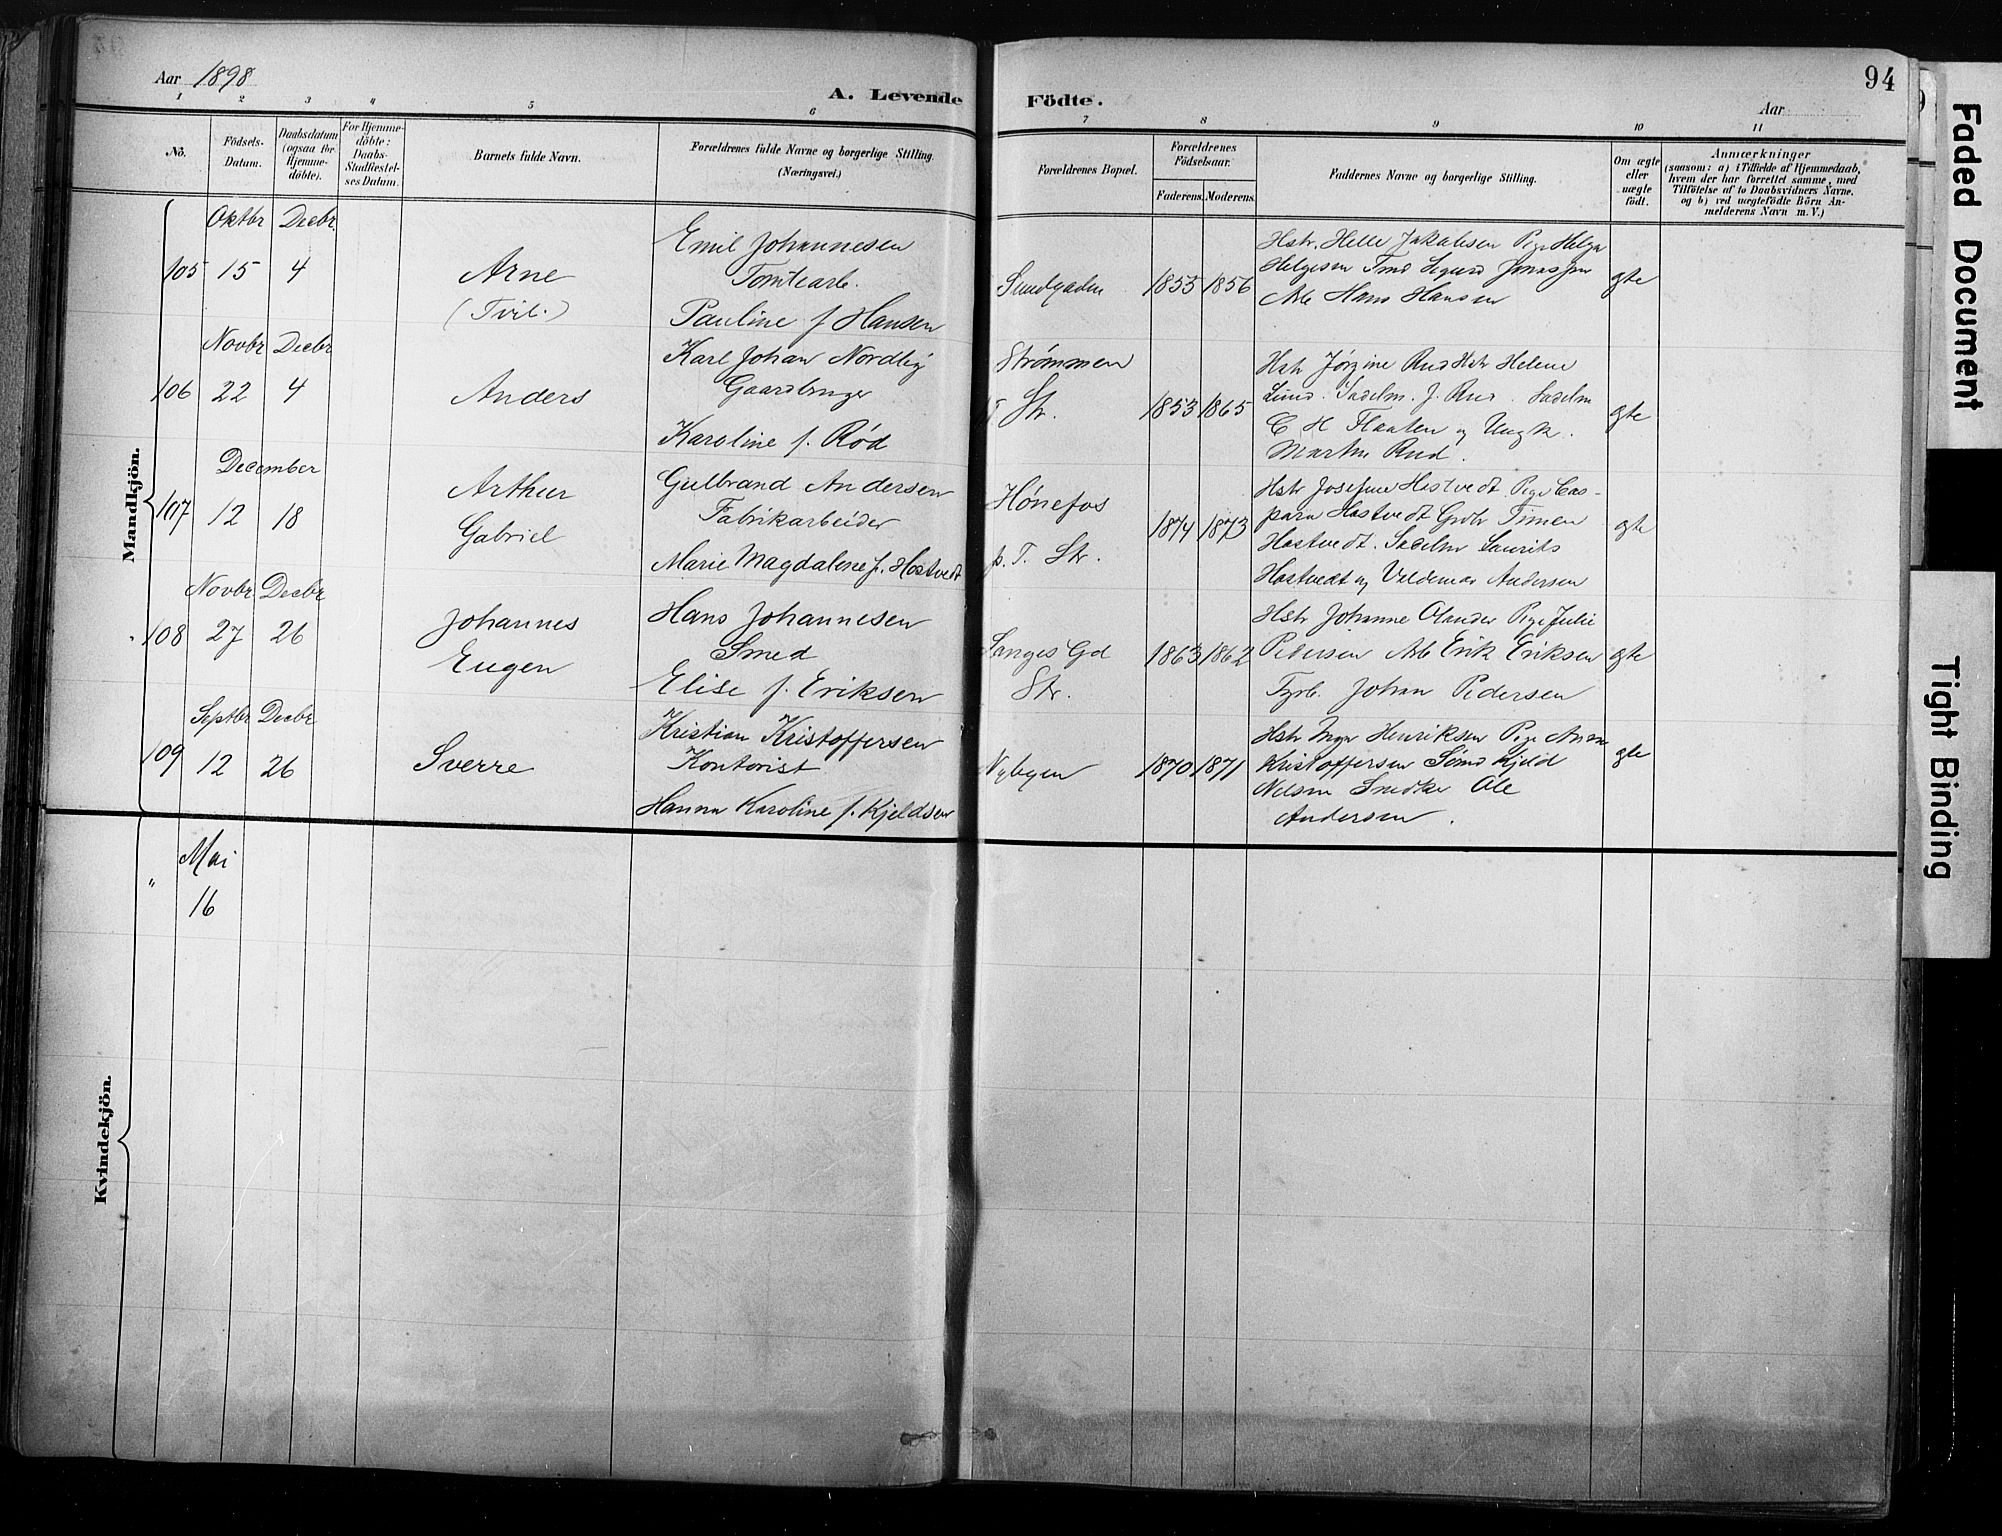 Aar 1898
A. Levende Födte.
Aar
94
1 2 3 4 5 6 7 8 9 10 11
Nö.
Födsels-Datum.
Daabsdatum (ogsaa for Hjemme-döbte).
For Hjemme-döbte: Daabs-Stadfæstel-ses Datum.
Barnets fulde Navn.
Forældrenes fulde Navne og borgerlige Stilling. (Næringsvei.)
Forældrenes Bopæl.
Forældrenes Födselsaar.
Faderens. Moderens.
Faddernes Navne og borgerlige Stilling.
Om ægte eller uægte födt.
Anmærkninger
(saasom: a) i Tilfælde af Hjemmedaab,
hvem der har forrettet samme, med
Tilföielse af to Daabsvidners Navne,
og b) ved uægtefödte Börn An-
melderens Navn m. V.)
Mandkjön.
Oktbr Decbr
105 15 4
Arne
(Tvil.)
Emil Johannesen
Tomtearb.
Pauline f. Hansen
Sundgaden
1855 1856
Hstr. Helle Jakobsen Pige Helga
Helgesen Tmd Sigurd
Arb Hans Hansen
gte
Novbr Decbr
106 22 4
Anders
Karl Johan Nordlig
Gaardbruger
Karoline f. Rød
Strømmen
Str.
1853 1865
Hstr Jørgine Rud Hstr Helene
Lund. Sadelm. J. Rud. Sadelm
C H Flaaten og Ungk.
Martin Rud.
gte
December
107 12 18
Arthur
Gabriel
Gulbrand Andersen
Fabrikarbeider
Marie Magdalene f. Hostvedt
Hønefos
p. T. Str.
1874 1873
Hstr Josefine Hostvedt Pige Cas-
para Hostvedt Gbr
Hostvedt. Sadelm Laurits
Hostvedt og Valdemar Andersen
gte
Novbr Decbr
108 27 26
Johannes
Eugen
Hans Johannesen
Smed
Elise f. Eriksen
Langes Gd
Str.
1863 1862
Hstr Johanne Olander Pige Julie
Pedersen Arb Erik Eriksen
Fyrb. Johan Pedersen
gte
Septbr Decbr
109 12 26
Sverre
Kristian Kristoffersen
Kontorist
Hanna Karoline f. Kjeldsen
Nybyen
1870 1871
Hstr Inga Henriksen Pige Anna
Kristoffersen Sømd Kjeld
Nelsen Snedker Ole
Andersen.
gte
Kvindekjön.
Mai
" 16
Faded Document
Tight Binding